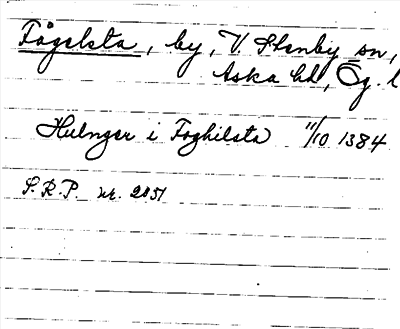 Fågelsta, by, V. Stenby sn,
Aska hd, Ög. l
Hulnger i Foghilsta 11/10 1384
S.R.P. nr. 2851